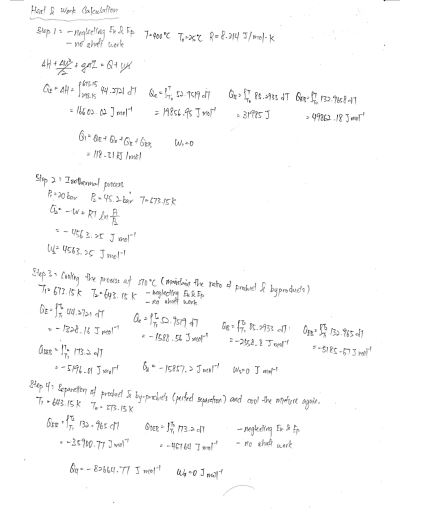 Heat & Work Calculation
Step 1: - neglecting Ek & Ep T=400°C T₀=25°C R=8.314 J/mol·K
- no shaft work
ΔH + Δu²/2 + gΔZ = Q + Ws
QE = ΔH = ∫ 44.2721 dT Qe = ∫ 52.9519 dT QB = ∫ 85.2933 dT QEB = ∫ 132.9658 dT
= 16602.02 J mol⁻¹ = 19856.95 J mol⁻¹ = 31985 J = 49862.18 J mol⁻¹
= 118.31 kJ/mol W₁=0
Step 2: Isothermal process
P₁=20 bar P₂=45.2 bar T=673.15K
Q₂ = -W = RT ln P₁/P₂
= -4563.25 J mol⁻¹
W₂ = 4563.25 J mol⁻¹
Step 3: Cooling the process at 370°C (maintain the ratio of product & byproducts)
T₁ = 673.15 K T₂ = 643.15 K - neglecting Ek & Ep
- no shaft work
QE = ∫ 44.2721 dT Qe = ∫ 52.9519 dT QB = ∫ 85.2933 dT QEB = ∫ 132.965 dT
= -1328.16 J mol⁻¹ = -1588.56 J mol⁻¹ = -2558.8 J mol⁻¹
QDEB = ∫ 173.2 dT
= -5196.01 J mol⁻¹ Q₃ = -15857.2 J mol⁻¹ W₃=0 J mol⁻¹
Step 4: Separation of product & by-products (perfect separation) and cool the mixture again.
T₁ = 643.15 K
QEB = ∫ 132.965 dT QDEB = ∫ 173.2 dT - neglecting Ek & Ep
= -35900.77 J mol⁻¹ = -46764 J mol⁻¹ - no shaft work
Q₄ = -82664.77 J mol⁻¹ W₄=0 J mol⁻¹